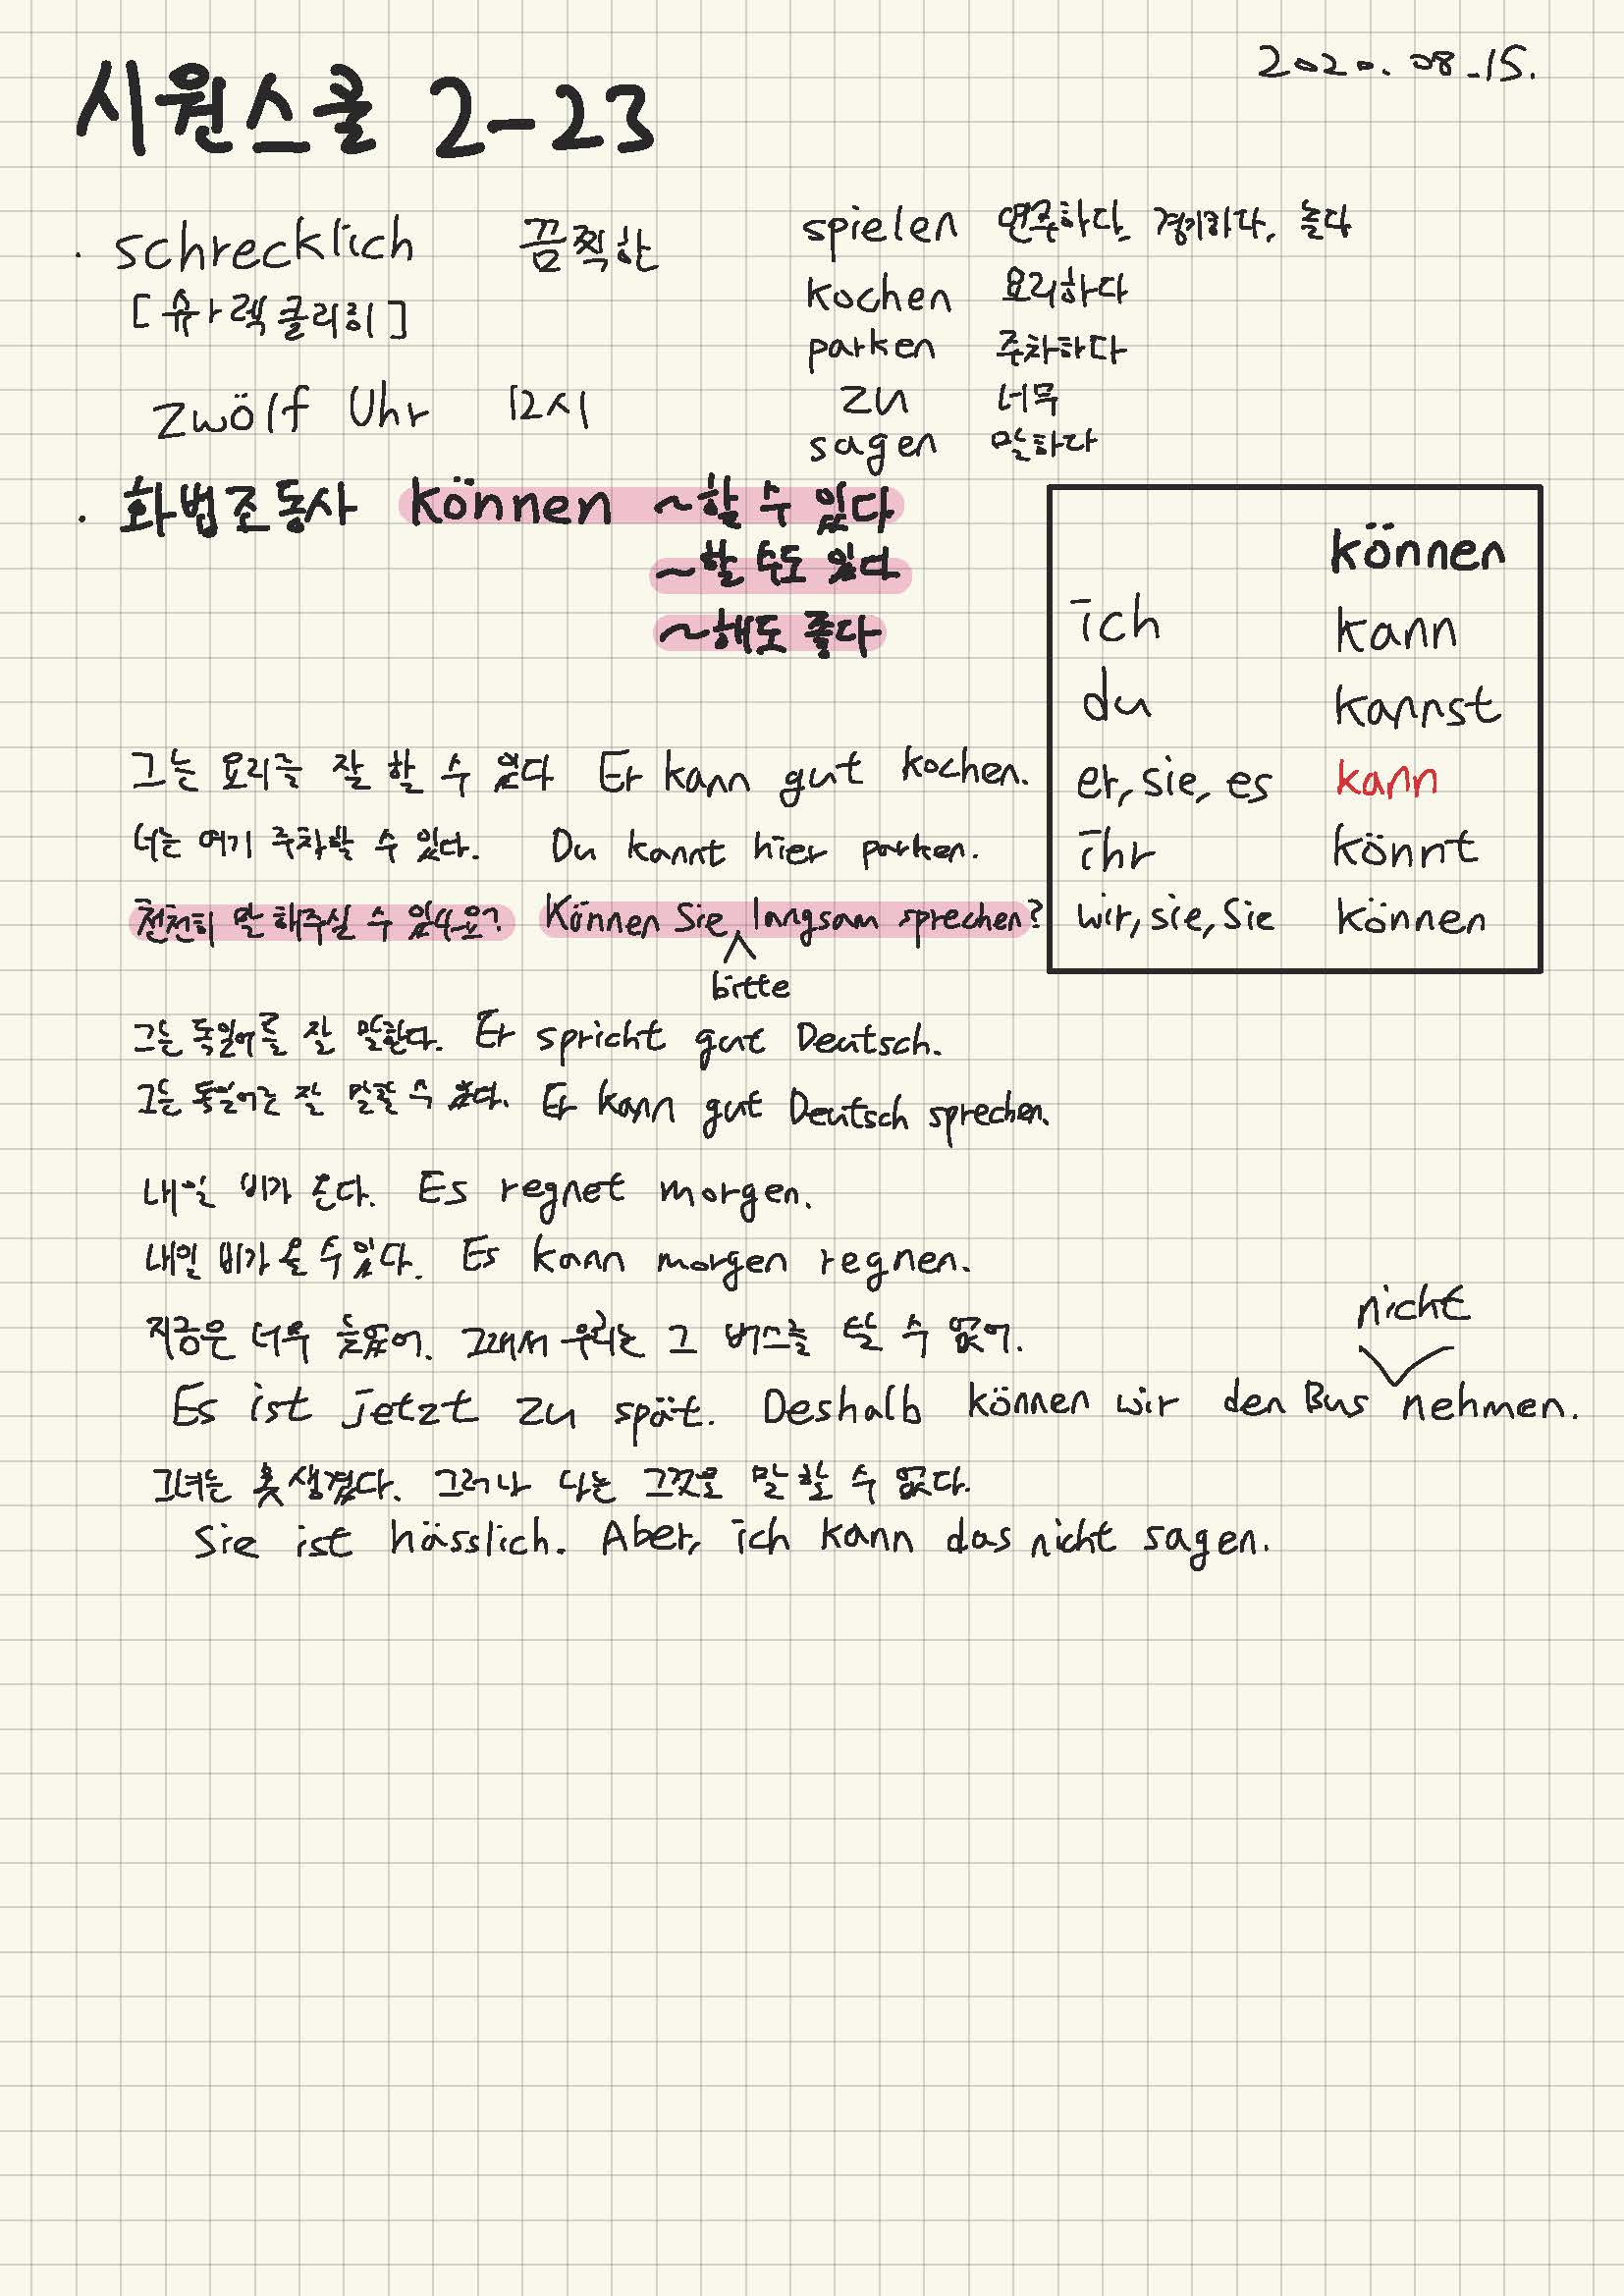 2020. 08. 15.
시원스쿨 2-23
· schrecklich 끔찍한
[슈렉클리히]
zwölf Uhr 12시
spielen 연주하다, 경기하다, 놀다
kochen 요리하다
parken 주차하다
zu 너무
sagen 말하다
· 화법조동사 können ~할 수 있다
~할 수도 있다
~해도 좋다
können
ich kann
du kannst
er, sie, es kann
ihr könnt
wir, sie, Sie können
그는 요리를 잘 할 수 있다 Er kann gut kochen.
너는 여기 주차할 수 있다. Du kannt hier parken.
천천히 말 해주실 수 있나요? Können Sie langsam sprechen?
bitte
그는 독일어를 잘 말한다. Er spricht gut Deutsch.
그는 독일어를 잘 말할 수 있다. Er kann gut Deutsch sprechen.
내일 비가 온다. Es regnet morgen.
내일 비가 올 수 있다. Es kann morgen regnen.
지금은 너무 늦었어. 그래서 우리는 그 버스를 탈 수 없어.
nicht
Es ist jetzt zu spät. Deshalb können wir den Bus nehmen.
그녀는 못생겼다. 그러나 나는 그것을 말 할 수 없다.
Sie ist hässlich. Aber, ich kann das nicht sagen.